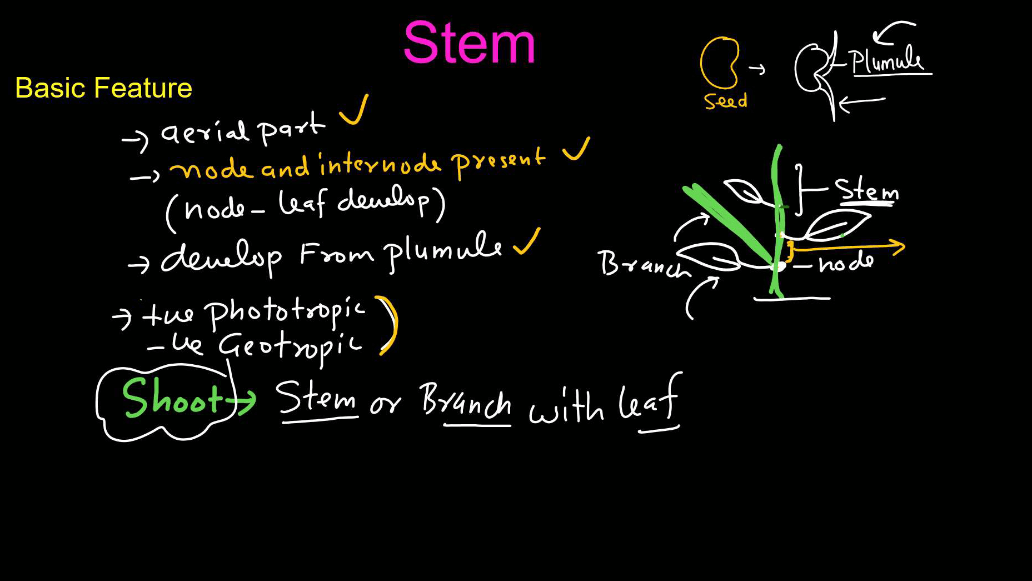 Stem
Basic Feature
→ aerial part ✓
→ node and internode present ✓
(node - leaf develop)
→ develop From plumule ✓
→ +ve Phototropic
-ve Geotropic
Shoot → Stem or Branch with leaf
Seed
Plumule
Stem
Branch
node